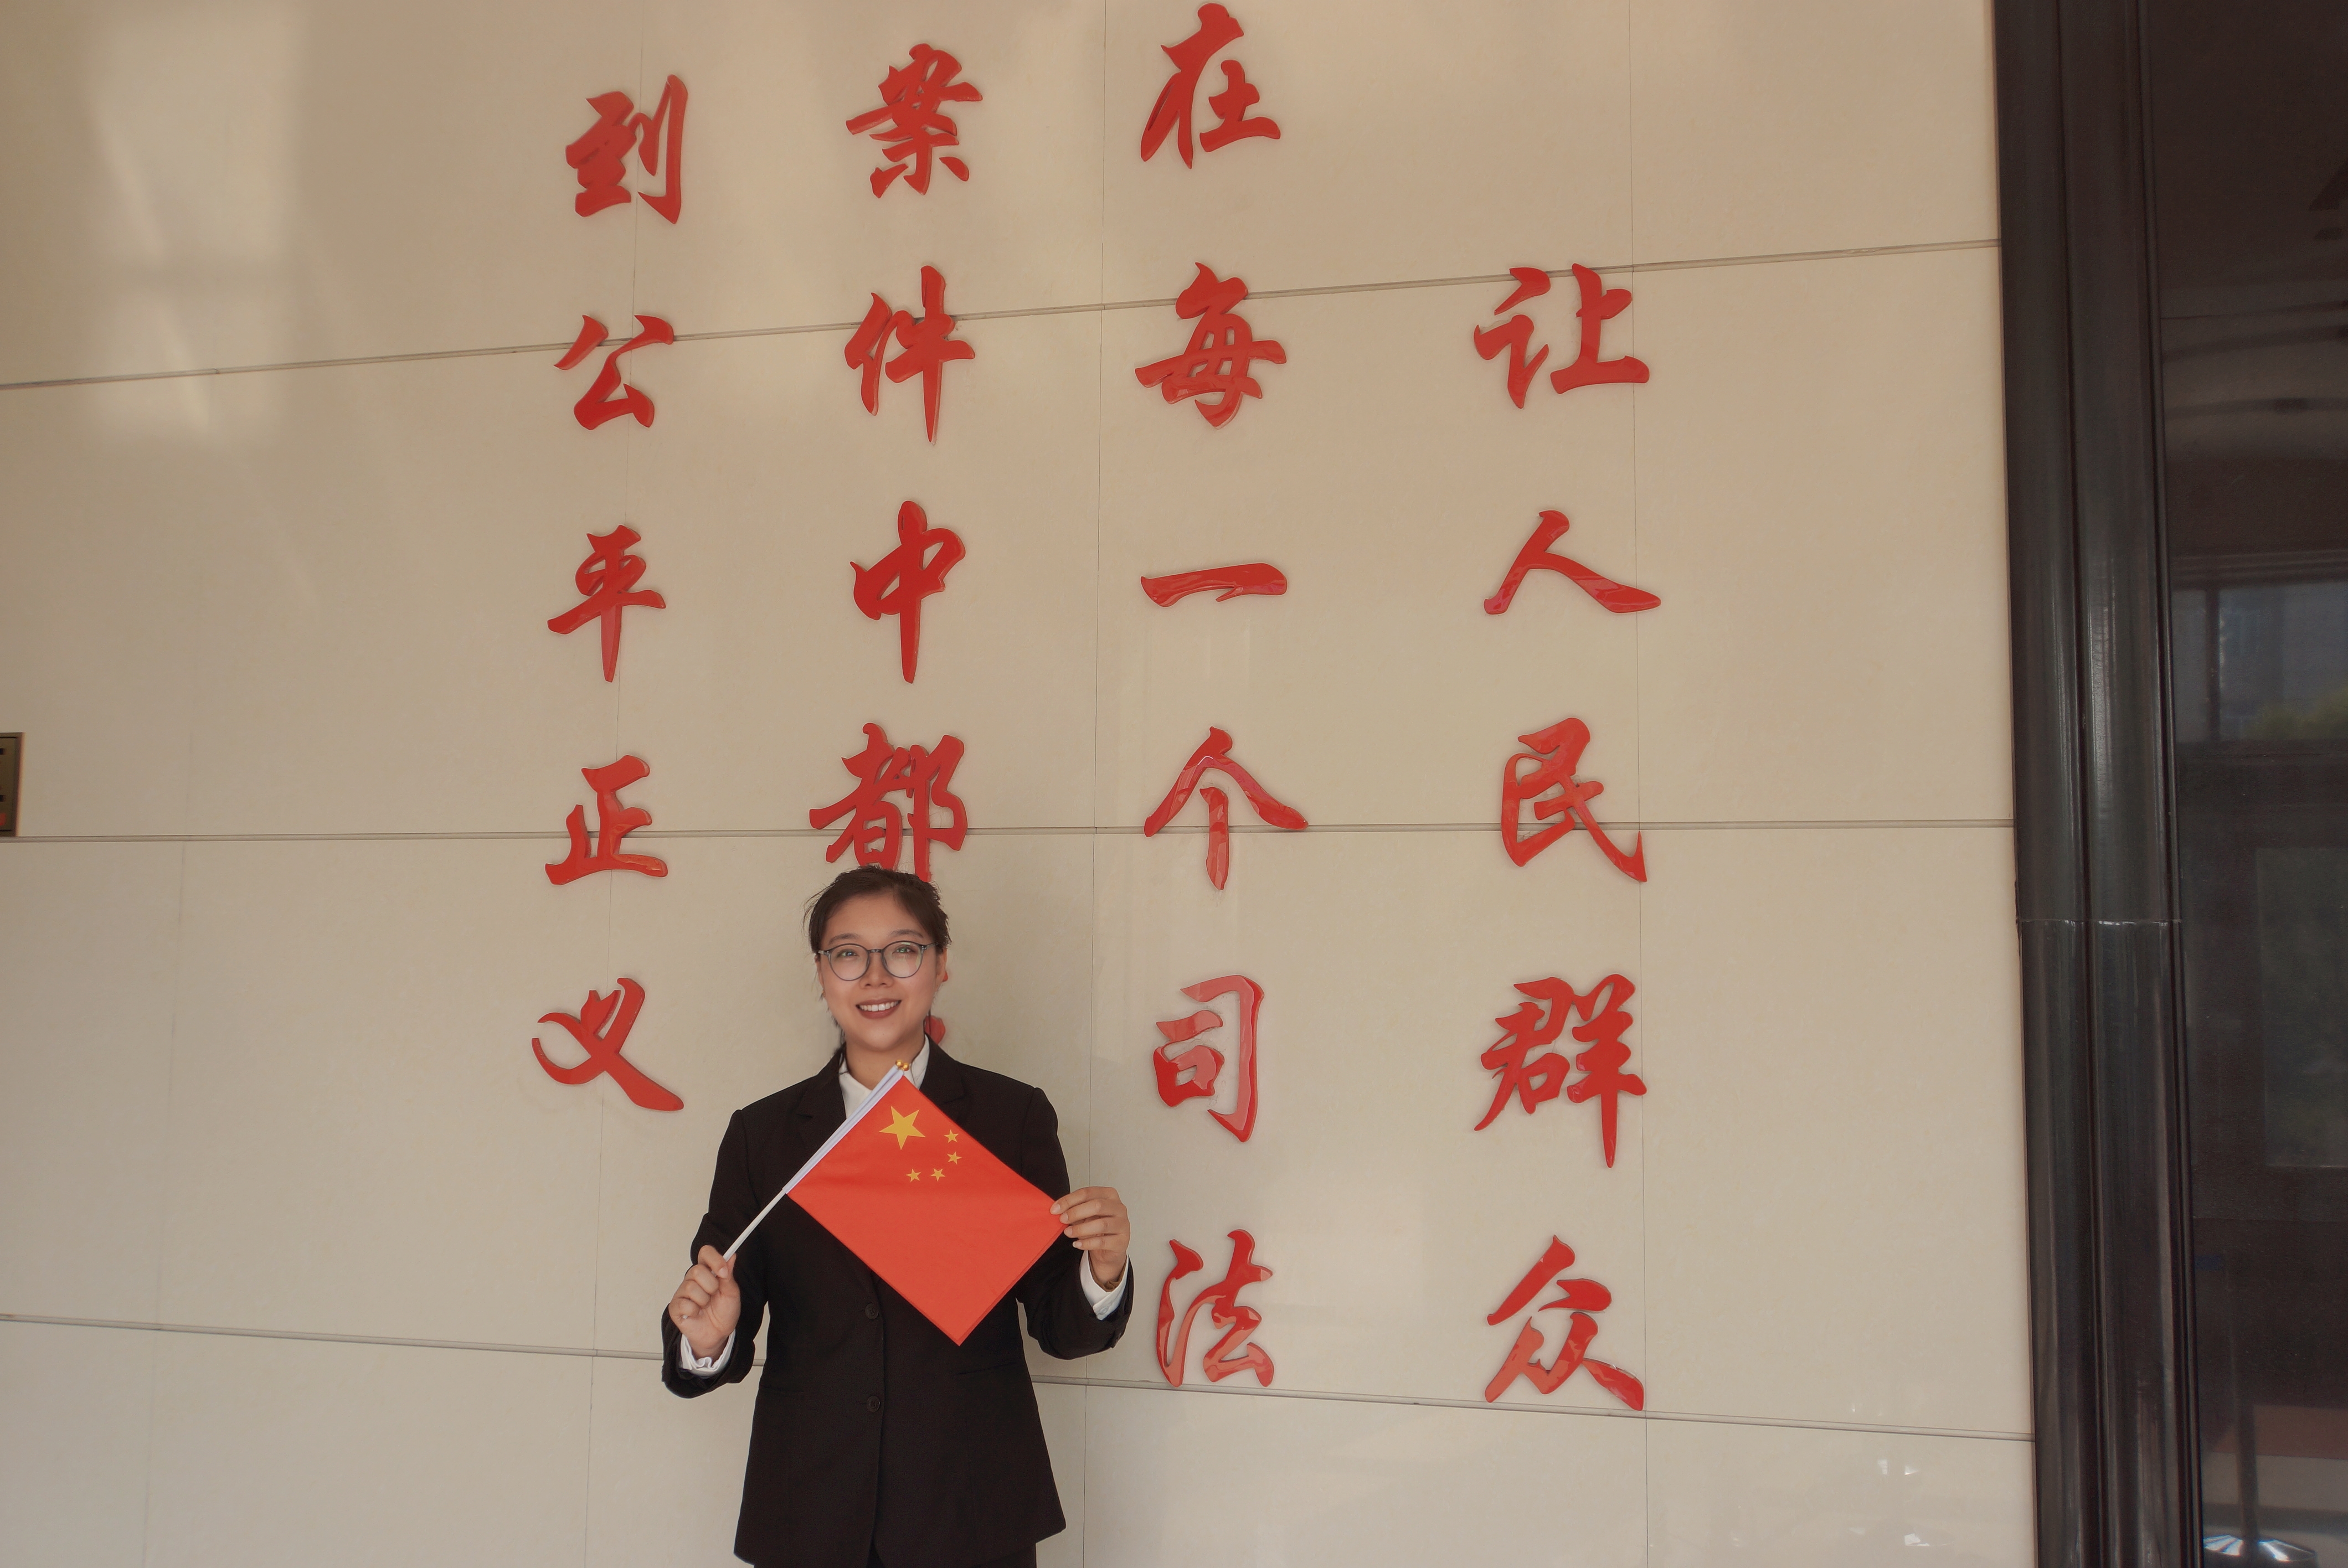 让人民群众
在每一个司法
案件中都
到公平正义